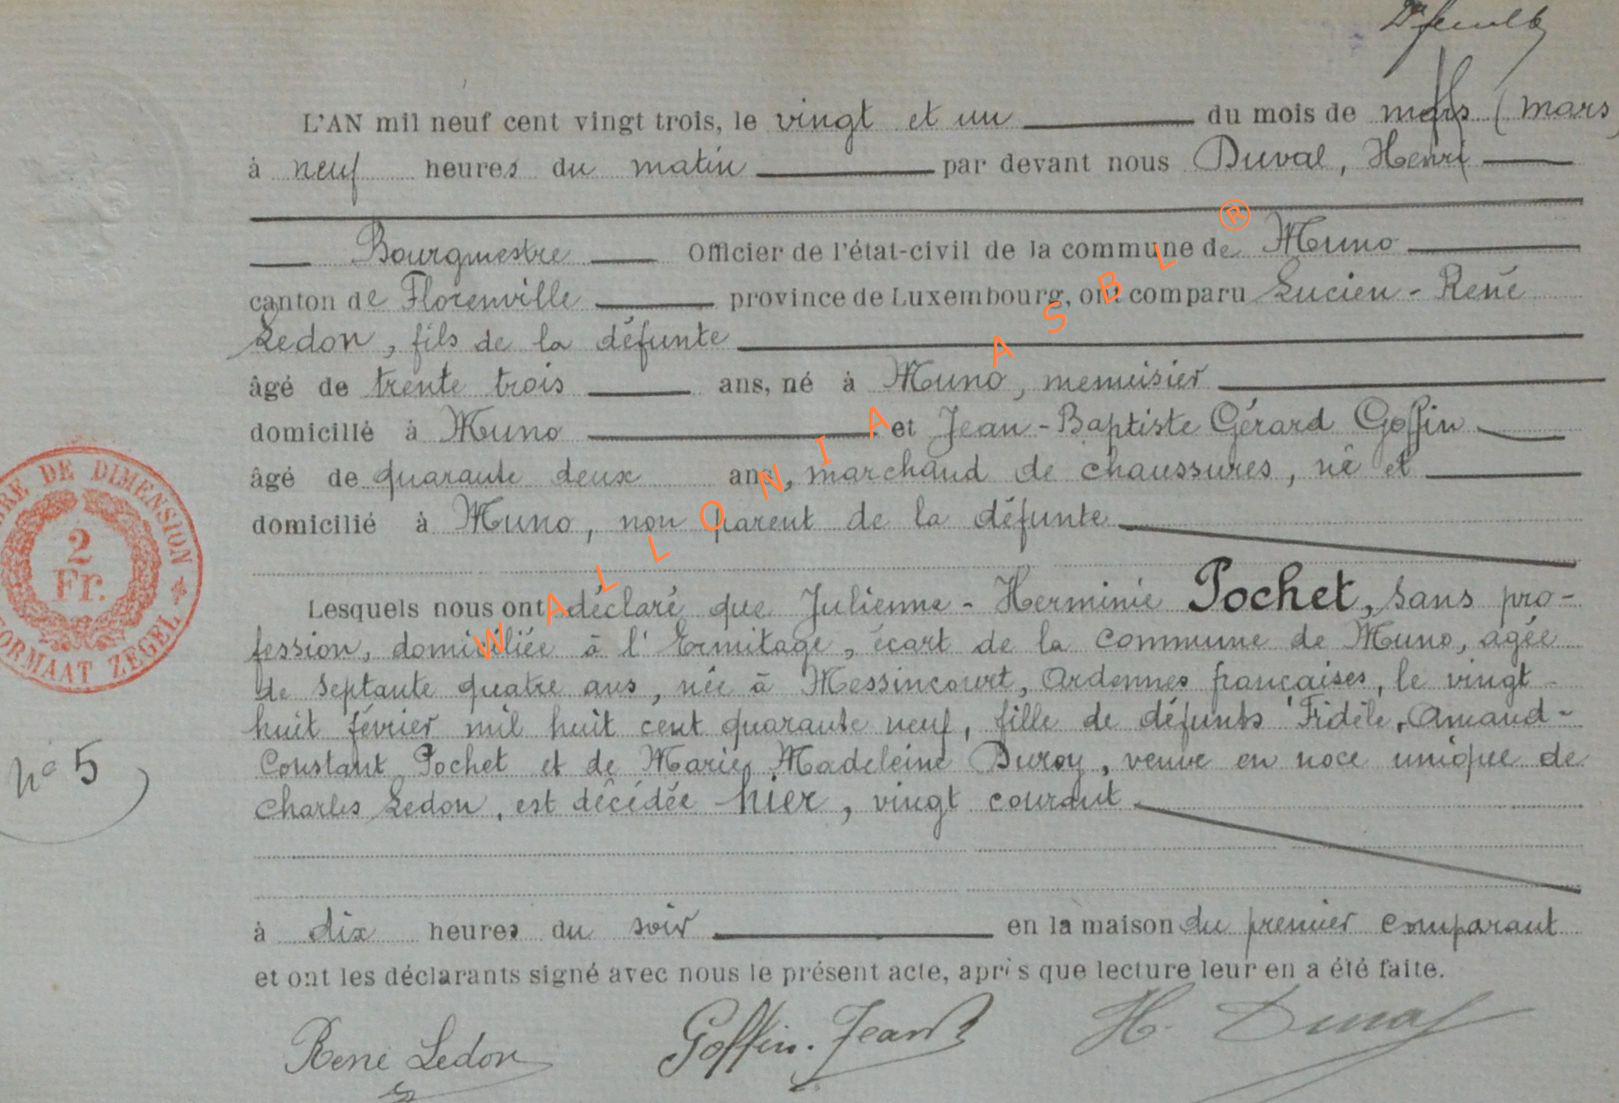 L'AN mil neuf cent vingt trois, le vingt et un du mois de mars (mars
à neuf heures du matin par devant nous Duval, Henri
Bourgmestre Officier de l'état-civil de la commune de Muno
canton de Florenville province de Luxembourg, ont comparu Lucien-René
Ledon, fils de la défunte
âgé de trente trois ans, né à Muno, menuisier
domicilié à Muno et Jean-Baptiste Gérard Goffin
âgé de quarante deux ans, marchand de chaussures, né et
domicilié à Muno, non parent de la défunte
Lesquels nous ont déclaré que Julienne-Herminie Pochet, sans pro-
fession, domiciliée à l'Ermitage, écart de la commune de Muno, agée
de septante quatre ans, née à Messincourt, Ardennes françaises, le vingt-
huit février mil huit cent quarante neuf, fille de défunts Fidèle, Amand-
Constant Pochet et de Marie Madeleine Duroy, veuve en noce unique de
Charles Ledon, est décédée hier, vingt courant
à dix heures du soir en la maison du premier comparant
et ont les déclarants signé avec nous le présent acte, après que lecture leur en a été faite.
René Ledon Goffin. Jean B H. Duval
N° 5
TIMBRE DE DIMENSION
2
Fr.
FORMAAT ZEGEL
WALLONIA ASBL ®